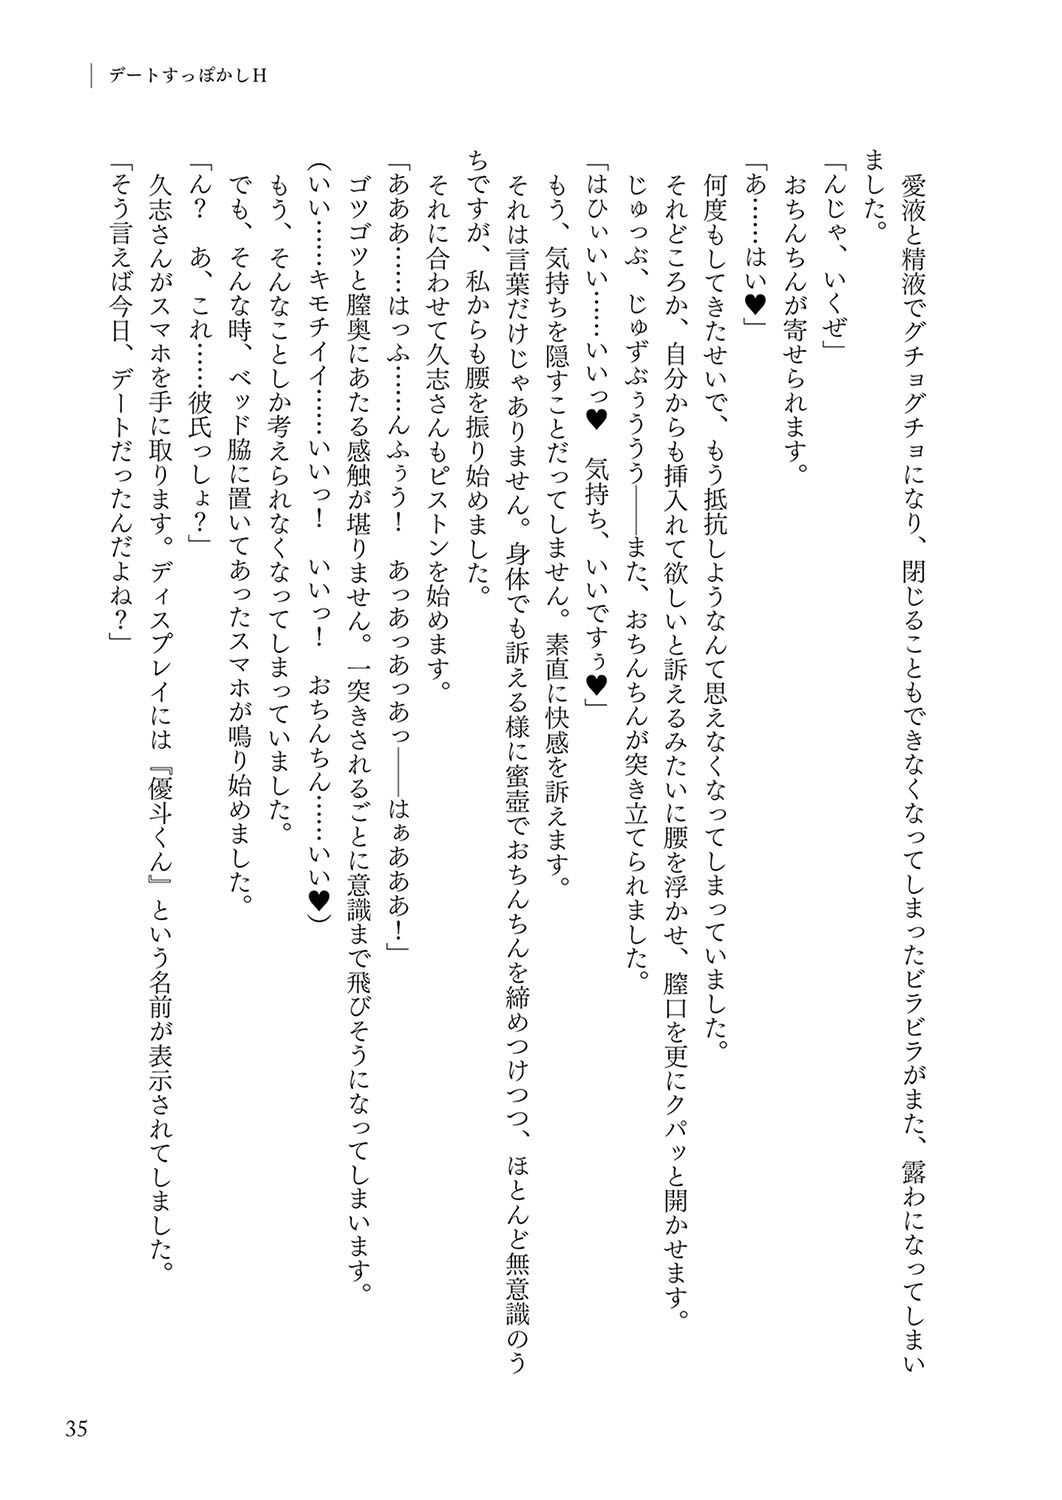 デートすっぽかしH
愛液と精液でグチョグチョになり、閉じることもできなくなってしまったビラビラがまた、露わになってしまい
ました。
「んじゃ、いくぜ」
おちんちんが寄せられます。
「あ……はい♥」
何度もしてきたせいで、もう抵抗しようなんて思えなくなってしまっていました。
それどころか、自分からも挿入れて欲しいと訴えるみたいに腰を浮かせ、膣口を更にクパッと開かせます。
じゅっぷ、じゅずぶぅううう――また、おちんちんが突き立てられました。
「はひぃいい……いいっ♥　気持ち、いいですぅ♥」
もう、気持ちを隠すことだってしません。素直に快感を訴えます。
それは言葉だけじゃありません。身体でも訴える様に蜜壺でおちんちんを締めつけつつ、ほとんど無意識のう
ちですが、私からも腰を振り始めました。
それに合わせて久志さんもピストンを始めます。
「あああ……はっふ……んふぅう！　あっあっあっあっ――はぁあああ！」
ゴツゴツと膣奥にあたる感触が堪りません。一突きされるごとに意識まで飛びそうになってしまいます。
（いい……キモチイイ……いいっ！　いいっ！　おちんちん……いい♥）
もう、そんなことしか考えられなくなってしまっていました。
でも、そんな時、ベッド脇に置いてあったスマホが鳴り始めました。
「ん？　あ、これ……彼氏っしょ？」
久志さんがスマホを手に取ります。ディスプレイには『優斗くん』という名前が表示されてしました。
「そう言えば今日、デートだったんだよね？」
35